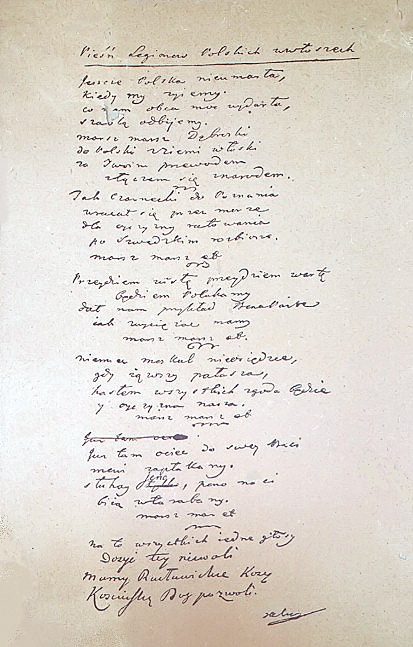 Pieśń Legionow Polskich wewłoszech
Jeszcze Polska nieumarła,
kiedy my żyiemy.
co nam obca moc wydarła,
szablą odbijemy.
marsz marsz Dąbrski
do Polski zziemi włoski
za Twoim przewodem
złączem się znarodem.
Jak Czarnecki do Poznania
wracał się przez morze
dla oyczyzny ratowania
po Szwedzkim rozbiorze.
marsz marsz et
Przeydziem wisłę przeydziem wartę
będziem Polakamy
dał nam przykład Bonaparte
jak zwyciężać mamy
marsz marsz et.
niemiec moskal nieosiędzie,
gdy iąwszy pałasza,
hasłem wszystkich zgoda będzie
y oyczyzna nasza.
marsz marsz et
Już tam ociec
Już tam ociec do swey Basi
mówi zapłakany.
słuchay jeno, pono nasi
biią wtarabany.
marsz mar et
na to wszystkich iedne głosy
Dosyć tey niewoli
Mamy Racławickie Kosy
Kosciuszkę Bog pozwoli.